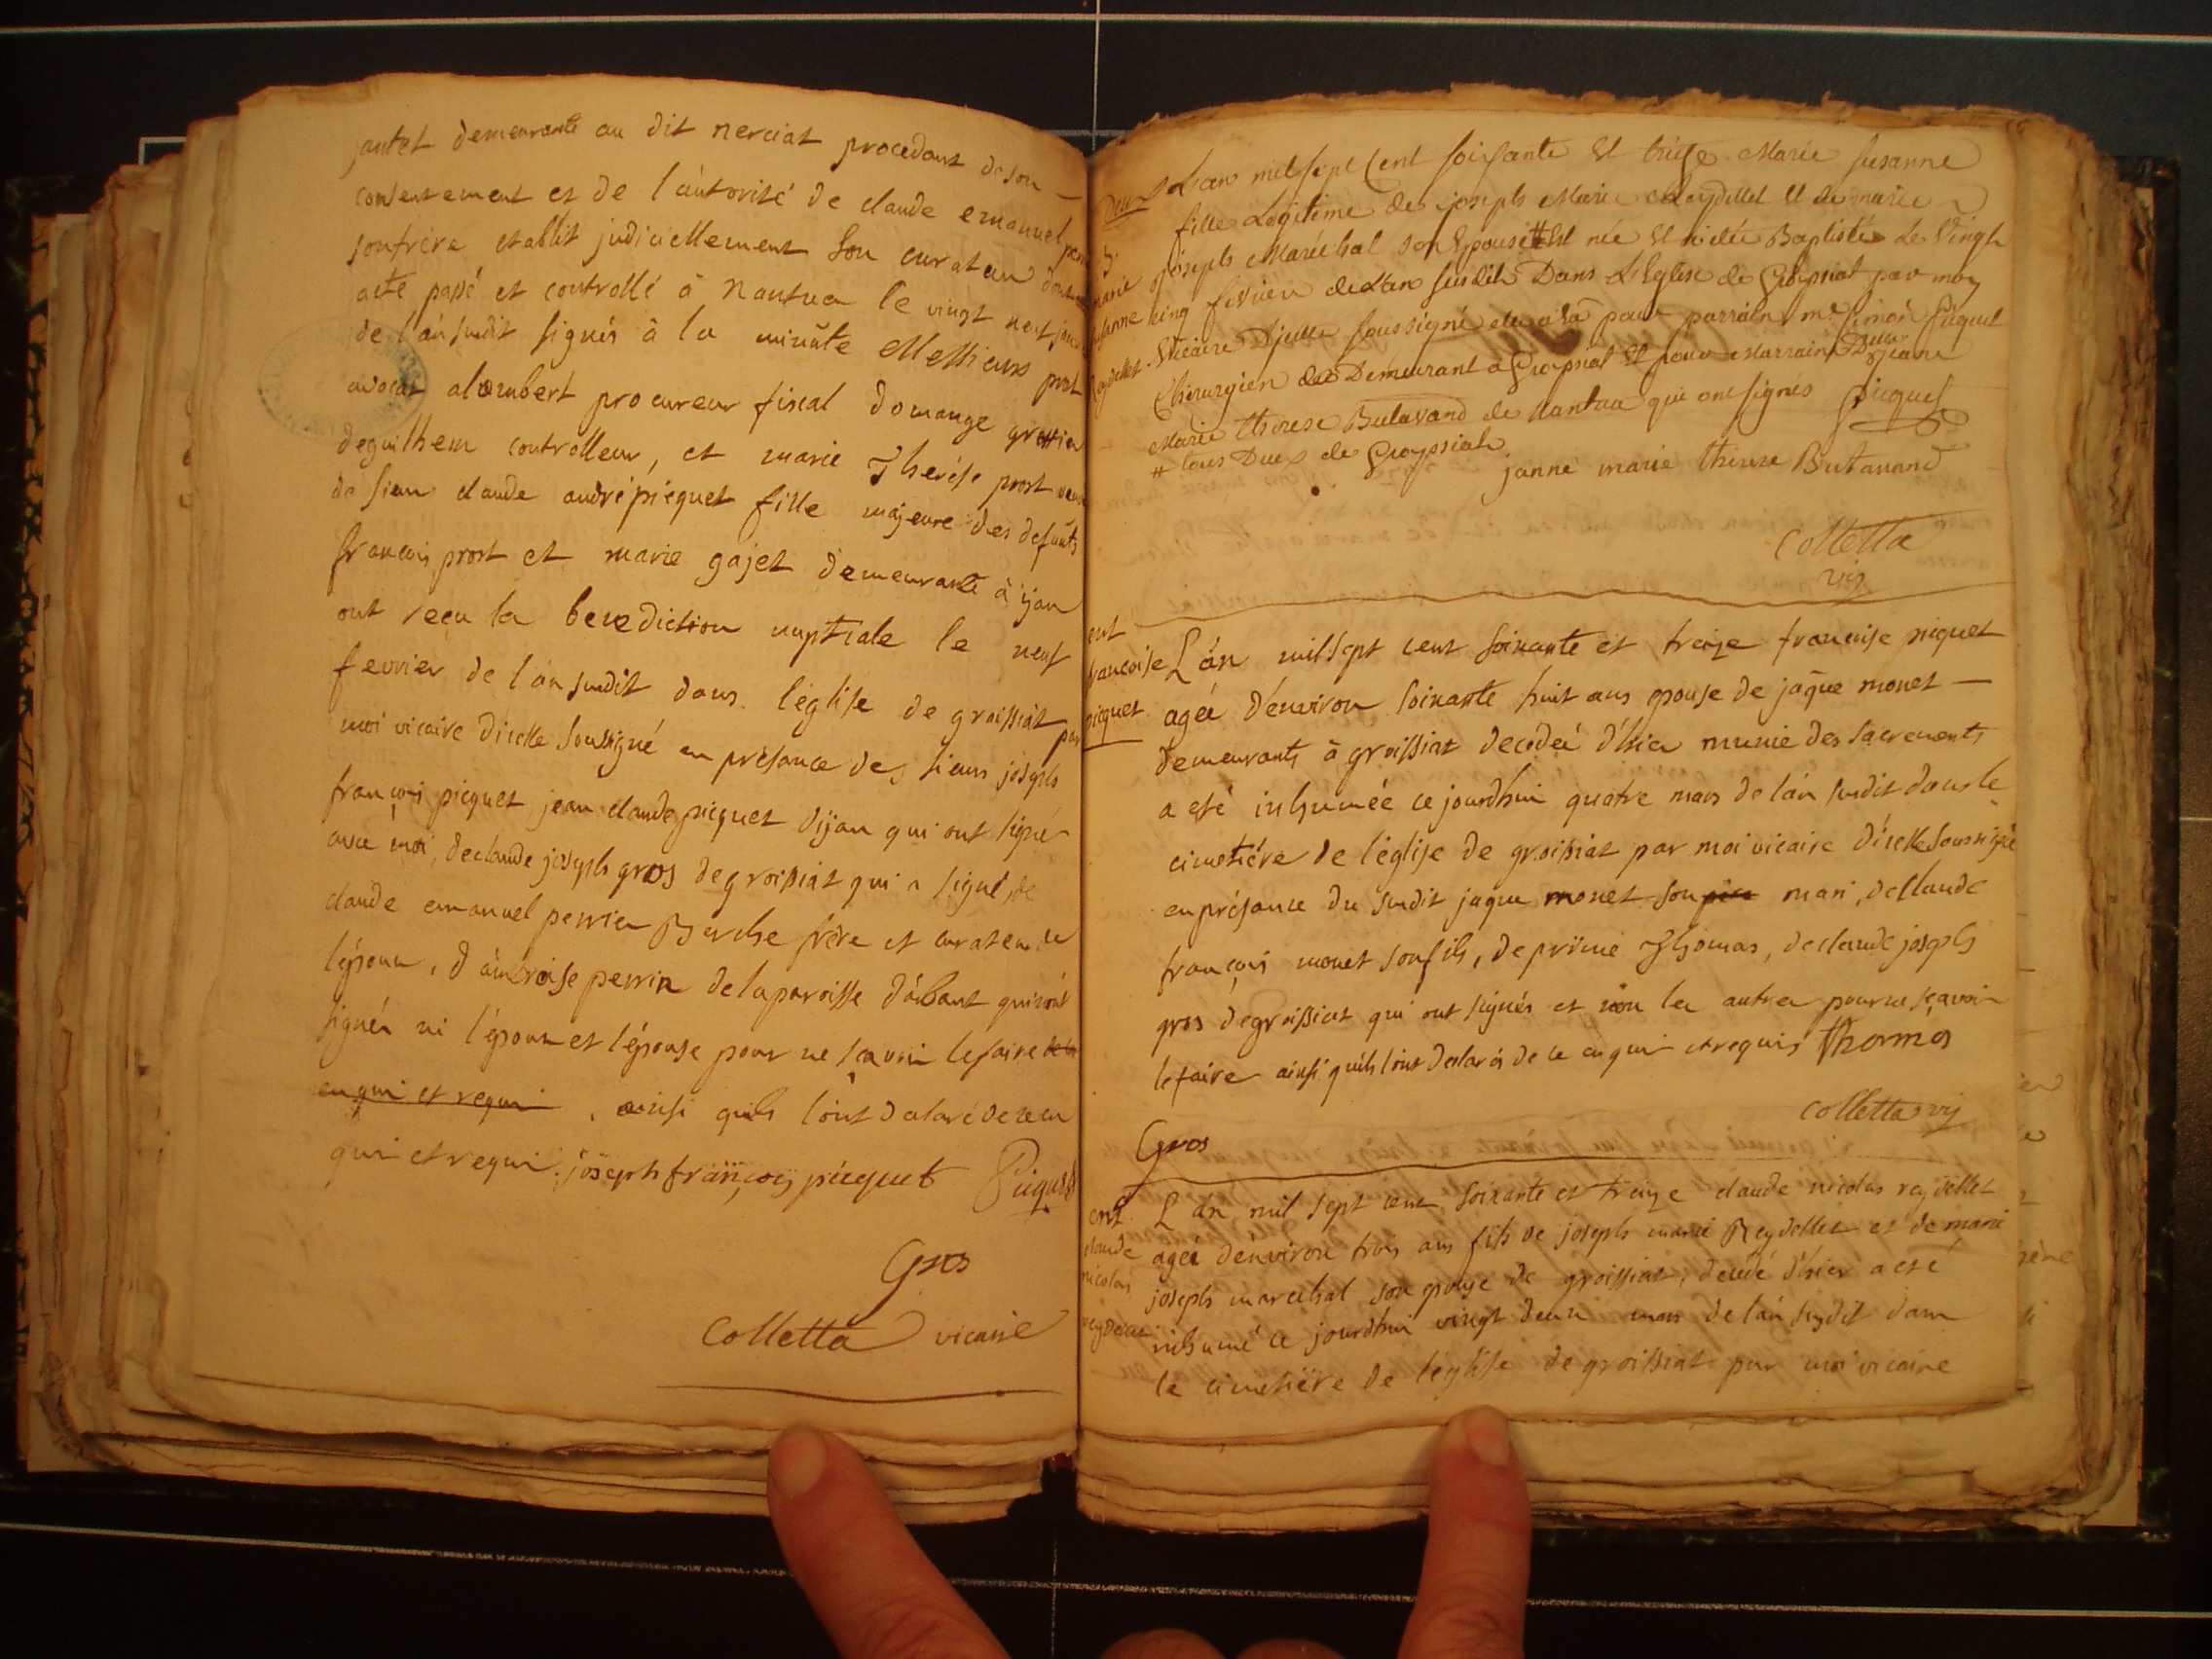 jantet demeurante au dit nerciat procedant de son
consentement et de l'autorité de claude emanuel
son frère etablit judiciellement son curateur
acte passé et controllé à nantua le vingt neuf
de l'an susdit signés à la minute Messieurs prost
avocat alombert procureur fiscal domange
deguilhem controlleur, et marie Therèse prost
de sieur claude andré picquet fille majeure des defunts
francois prost et marie gajet demeurante à ijan
ont reçu la benediction nuptiale le neuf
fevrier de l'an susdit dans l'église de groissiat par
moi vicaire d'icelle soussigné en présance des sieurs joseph
françois picquet jean claude picquet d'ijan qui ont signé
avec moi, de claude joseph gros de groissiat qui a signé, de
claude emanuel perrier frère et curateur de
l'époux, d'ambroise perrin de la paroisse d'
signés ni l'époux et l'épouse pour ne sçavoir le faire
enqui et requi, ainsi quils l'ont declaré de ce en
qui et requi. joseph françois picquet Picquet
Gros
Colletta vicaire
L'an mil sept cent soixante et treize Marie Susanne
fille Legitime de joseph Marie Reydellet et de marie
joseph Maréchal son Epouse # Est née et a été Baptisée Le Vingt
cinq fevrier de L'an susdit Dans L'Eglise de Groissiat par moy
Vicaire D'icelle soussigné elle a eû pour parrain mr. simon Piquet
Chirurgien Demeurant à Groissiat et pour Marraine Dlle Jeane
Marie therese Butavand de Nantua qui ont signés Picquet
# tous Deux de Groyssiat
janne marie therese Butavand
Colletta
vic
ent
francoise
picquet
L'an mil sept cent soixante et treize francoise picquet
agée d'environ soixante huit ans epouse de jaque monet
demeurants à groissiat decedeé d'hier munie des sacrements
a eté inhumée ce jourdhui quatre mars de l'an susdit dans le
cimetiére de l'église de groissiat par moi vicaire d'icelle soussigné
en présance du susdit jaque monet son pere mari, de claude
françois monet son fils, de primé Thomas, de claude joseph
gros de groissiat qui ont signés et non les autres pour ne sçavoir
le faire ainsi quils l'ont declarés de ce enqui et requis Thomas
Colletta vic
Gros
ent
claude
nicolas
reydellet
L'an mil sept cent soixante et treize claude nicolas reydellet
agée d'environ trois ans fils de joseph marie Reydellet et de marie
joseph marechal son epouse de groissiat, decedé d'hier a eté
inhumé ce jourdhui vingt deux mars de l'an susdit dans
le cimetière de l'église de groissiat par moi vicaire